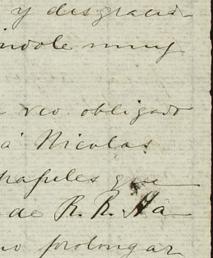 y desgracia-
índole muy
veo obligado
á Nicolas
papeles que
de R. R. Ha-
no prolongar